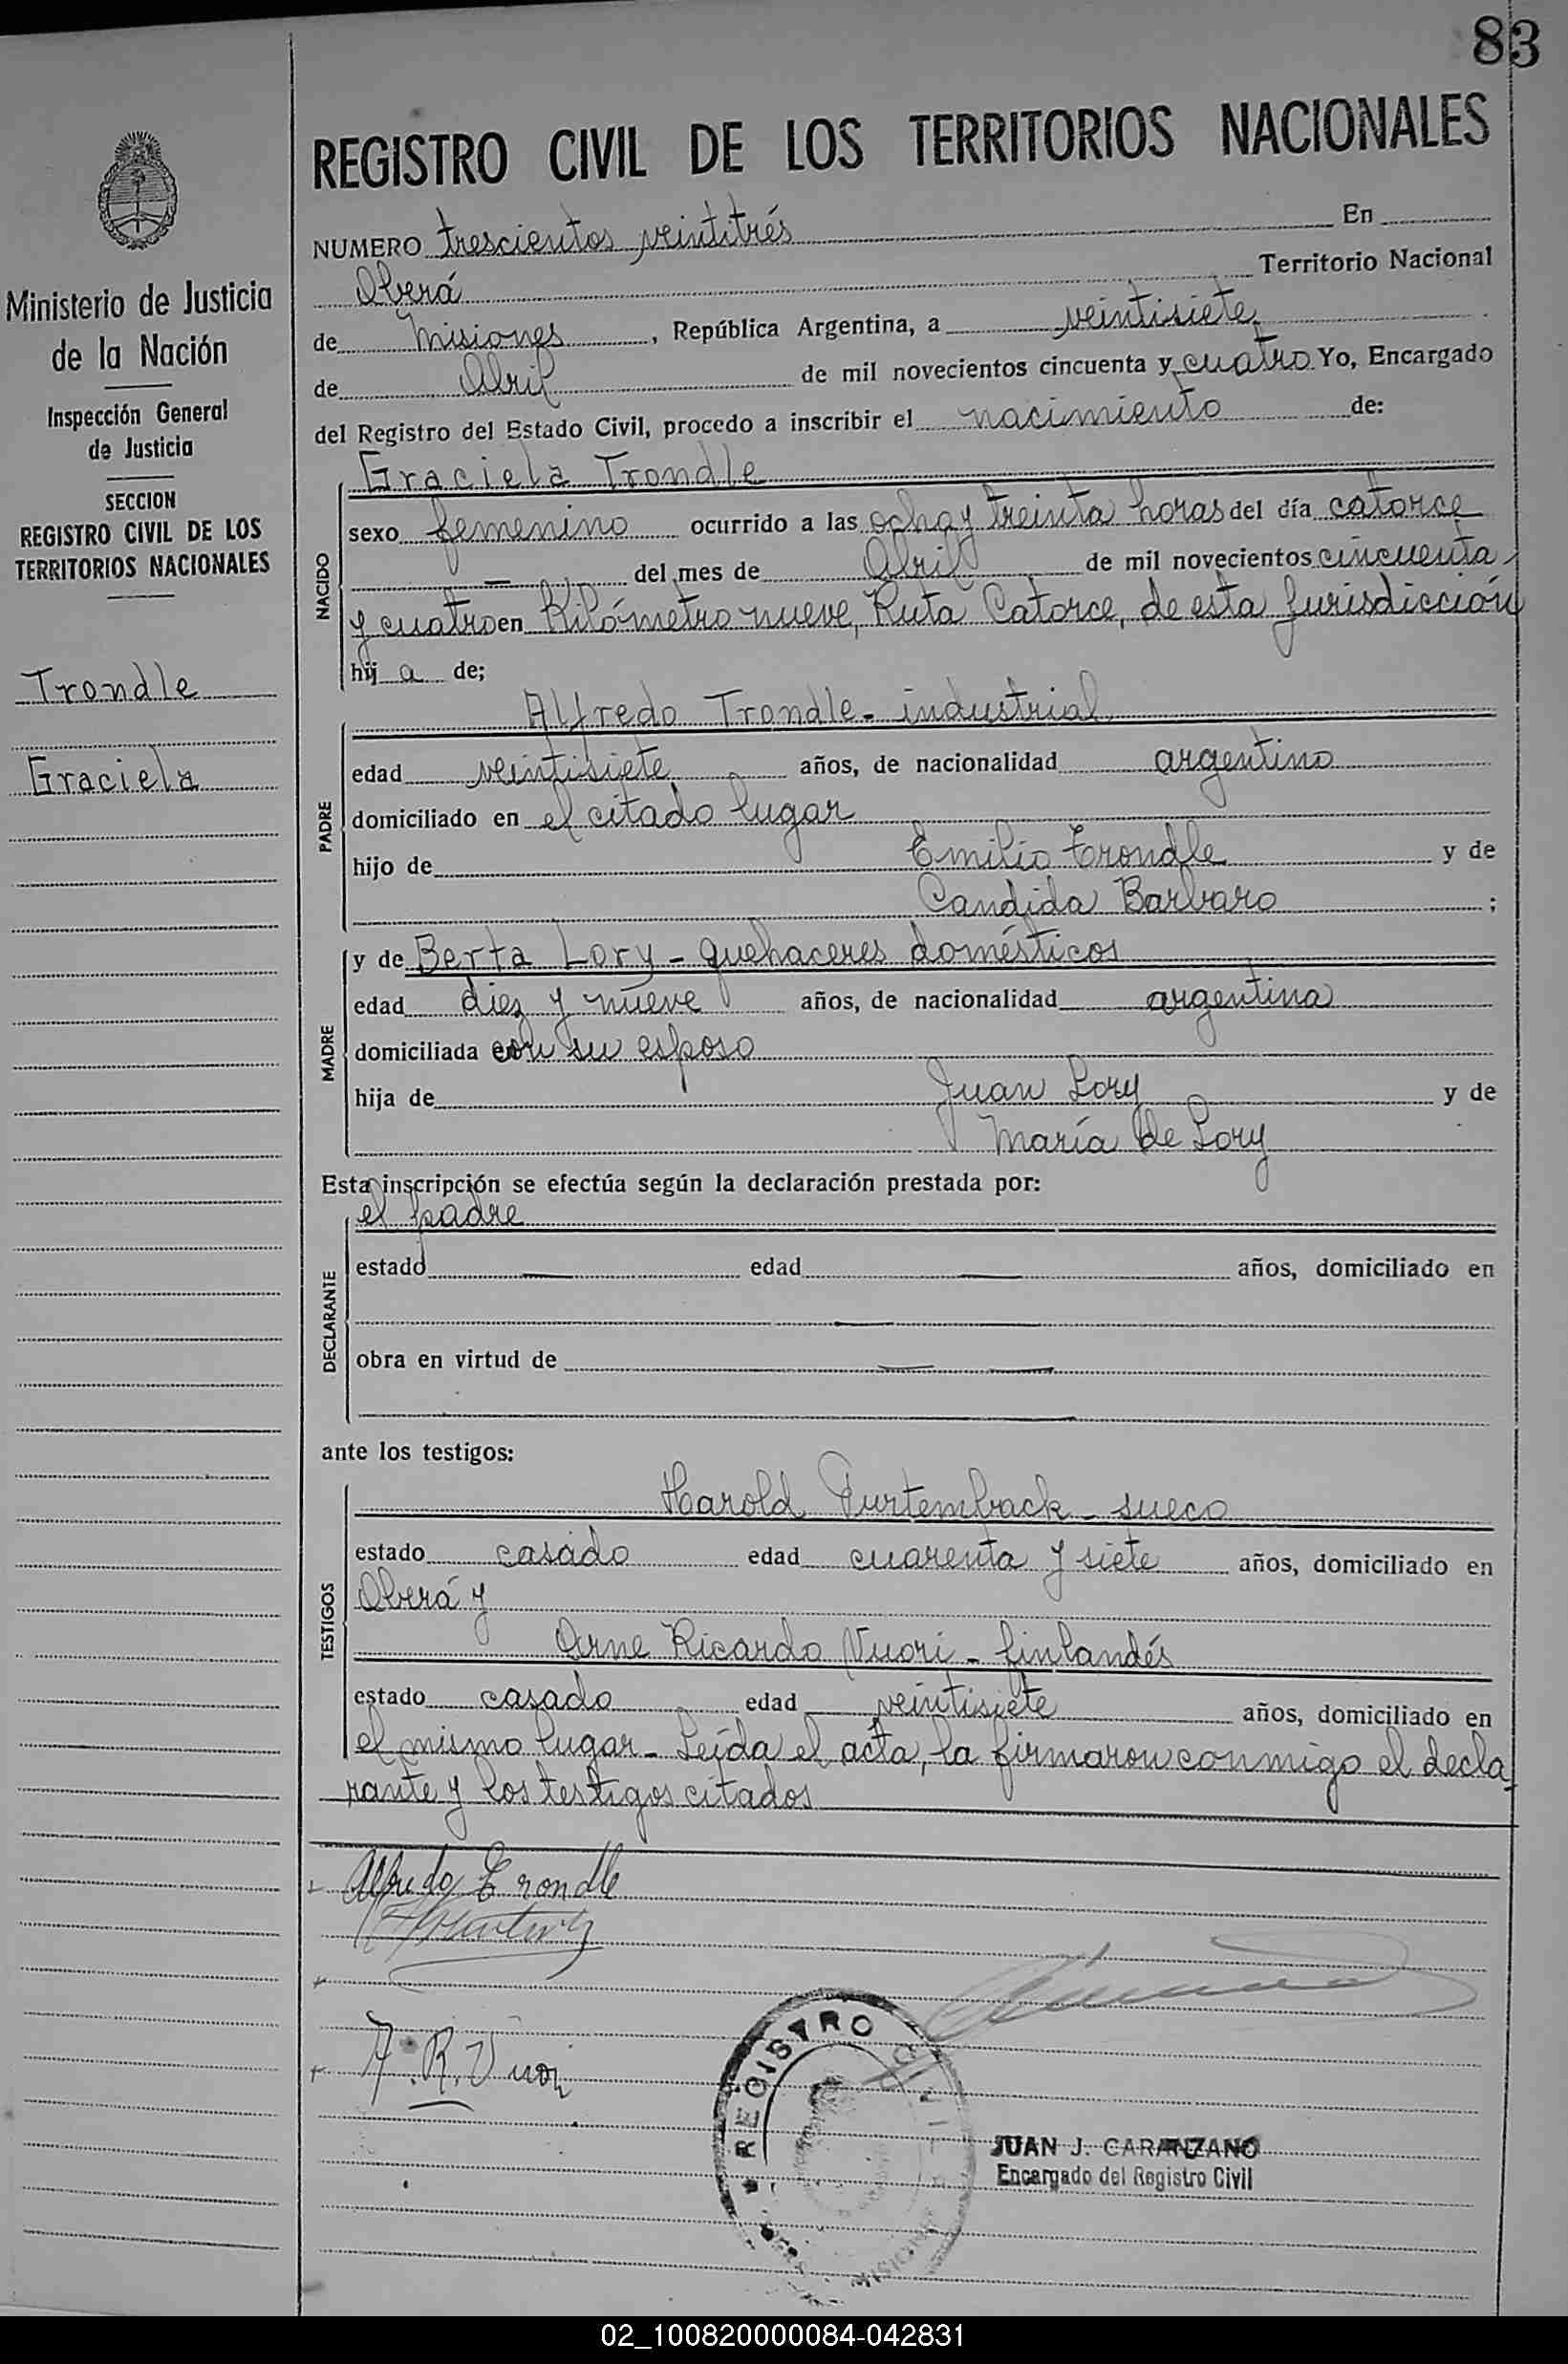 83
REGISTRO CIVIL DE LOS TERRITORIOS NACIONALES
Ministerio de Justicia
de la Nación
Inspección General
de Justicia
SECCION
REGISTRO CIVIL DE LOS
TERRITORIOS NACIONALES
Trondle
Graciela
NUMERO trescientos veintitrés En
Oberá Territorio Nacional
de Misiones, República Argentina, a veintisiete
de Abril de mil novecientos cincuenta y cuatro Yo, Encargado
del Registro del Estado Civil, procedo a inscribir el nacimiento de:
NACIDO
Graciela Trondle
sexo femenino ocurrido a las ocho y treinta horas del día catorce
— del mes de Abril de mil novecientos cincuenta
y cuatro en Kilómetro nueve, Ruta Catorce, de esta Jurisdicción
hij a de;
PADRE
Alfredo Trondle - industrial
edad veintisiete años, de nacionalidad argentino
domiciliado en el citado lugar
hijo de Emilio Trondle y de
Candida Barbaro ;
MADRE
y de Berta Lory - quehaceres domésticos
edad diez y nueve años, de nacionalidad argentina
domiciliada con su esposo
hija de Juan Lory y de
María de Lory
Esta inscripción se efectúa según la declaración prestada por:
DECLARANTE
el padre
estado — edad — años, domiciliado en
—
obra en virtud de — —
ante los testigos:
TESTIGOS
Harold Furtemback - sueco
estado casado edad cuarenta y siete años, domiciliado en
Oberá y
Arne Ricardo Vuori - finlandés
estado casado edad veintisiete años, domiciliado en
el mismo lugar - Leída el acta, la firmaron conmigo el decla-
rante y los testigos citados
Alfredo Trondle
A. R. Vuori
REGISTRO CIVIL
MISIONES
JUAN J. CARANZANO
Encargado del Registro Civil
02_100820000084-042831